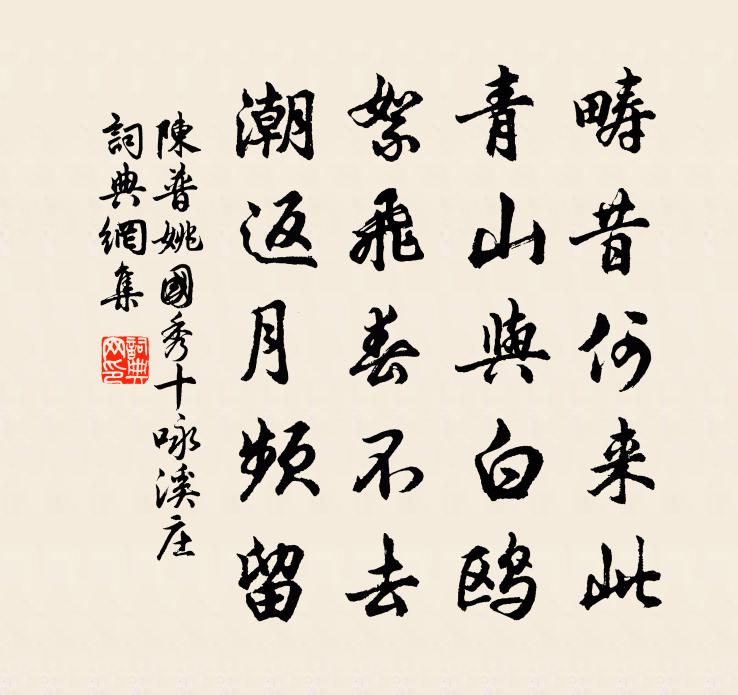 疇昔何来此
青山與白鸥
絮飛春不去
潮返月頻留
陳普姚國秀十咏溪庄
詞典網集
詞典
网印